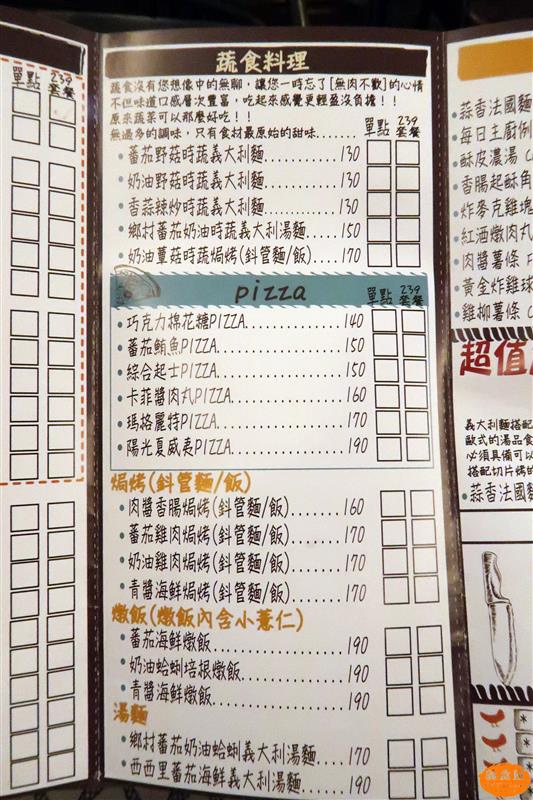 單點
239
套餐
蔬食料理
蔬食沒有您想像中的無聊，讓您一時忘了[無肉不歡]的心情
不但味道口感層次豐富，吃起來感覺更輕盈沒負擔！！
原來蔬菜可以那麼好吃！！
無過多的調味，只有食材最原始的甜味.......
單點
239
套餐
•蕃茄野菇時蔬義大利麵...........130
•奶油野菇時蔬義大利麵...........130
•香蒜辣炒時蔬義大利麵...........130
•鄉村蕃茄奶油時蔬義大利湯麵....150
•奶油蕈菇時蔬焗烤(斜管麵/飯)....170
pizza
單點
239
套餐
•巧克力棉花糖PIZZA..............140
•蕃茄鮪魚PIZZA..................150
•綜合起士PIZZA..................150
•卡菲醬肉丸PIZZA................160
•瑪格麗特PIZZA..................170
•陽光夏威夷PIZZA................190
焗烤(斜管麵/飯)
•肉醬香腸焗烤(斜管麵/飯).......160
•蕃茄雞肉焗烤(斜管麵/飯).......170
•奶油雞肉焗烤(斜管麵/飯).......170
•青醬海鮮焗烤(斜管麵/飯).......170
燉飯(燉飯內含小薏仁)
•蕃茄海鮮燉飯..................190
•奶油蛤蜊培根燉飯..............190
•青醬海鮮燉飯..................190
湯麵
•鄉村蕃茄奶油蛤蜊義大利湯麵....170
•西西里蕃茄海鮮義大利湯麵.....190
•蒜香法國麵
•每日主廚例
•酥皮濃湯
•香腸起酥角
•炸麥克雞塊
•紅酒燉肉丸
•肉醬薯條
•黃金炸雞球
•雞柳薯條
超值
義大利麵搭配
歐式的湯品食
必須具備可以
搭配切片烤的
•蒜香法國麵